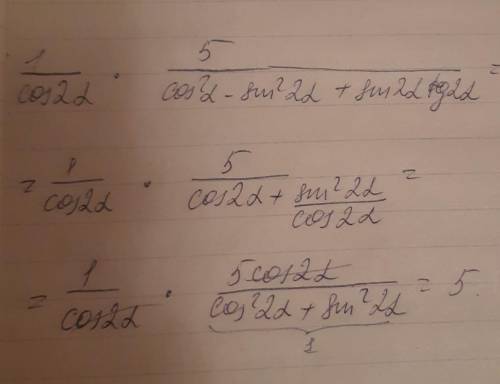 1/cos2α · 5/(cos²α - sin²2α + sin2α tg2α) =
= 1/cos2α · 5/(cos2α + sin²2α/cos2α) =
= 1/cos2α · 5cos2α/(cos²2α + sin²2α) = 5.
1